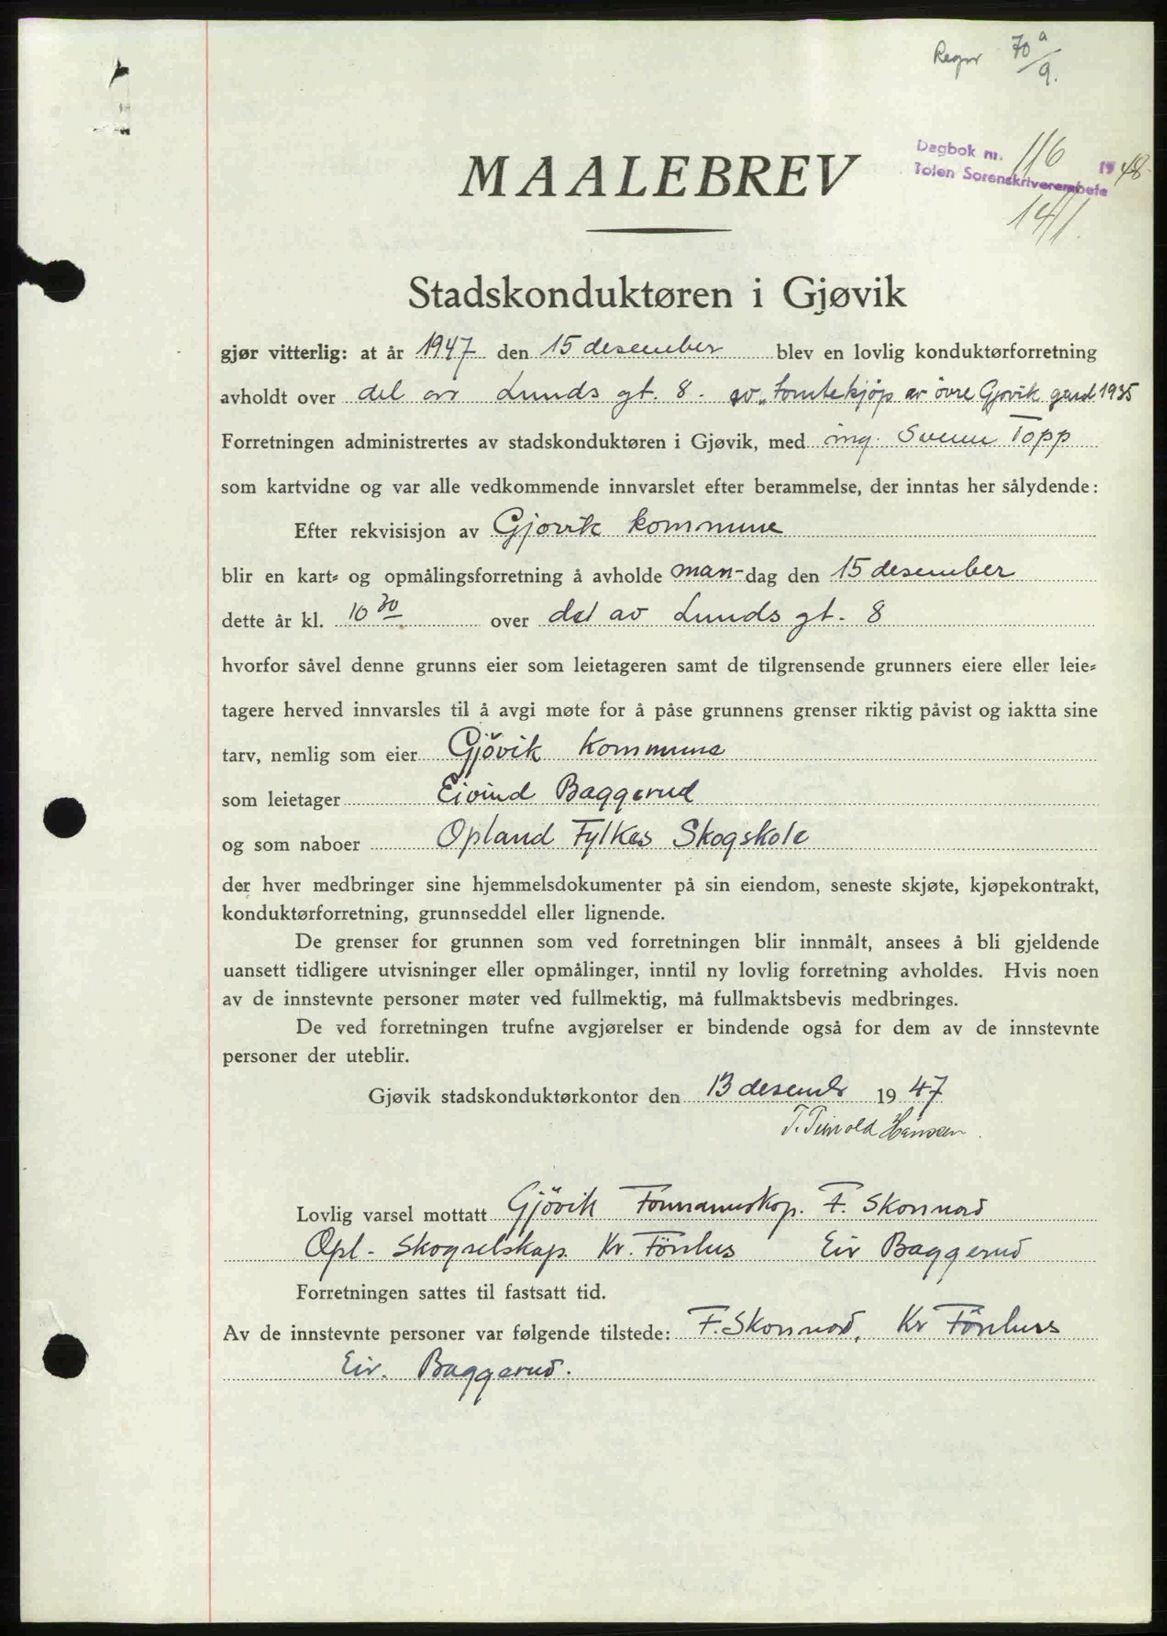 Regnr 70 a/9.
Dagbok nr. 116 1948.
Toten Sorenskriverembete
14/1.
MAALEBREV
Stadskonduktøren i Gjøvik
gjør vitterlig: at år 1947 den 15 desember blev en lovlig konduktørforretning
avholdt over del av Lunds gt. 8. av „Tomtekjöp av övre Gjövik gard 1935
Forretningen administrertes av stadskonduktøren i Gjøvik, med ing. Svenn Topp
som kartvidne og var alle vedkommende innvarslet efter berammelse, der inntas her sålydende:
Efter rekvisisjon av Gjøvik kommune
blir en kart- og opmålingsforretning å avholde man-dag den 15 desember
dette år kl. 10 30 over del av Lunds gt. 8
hvorfor såvel denne grunns eier som leietageren samt de tilgrensende grunners eiere eller leie-
tagere herved innvarsles til å avgi møte for å påse grunnens grenser riktig påvist og iaktta sine
tarv, nemlig som eier Gjövik Kommune
som leietager Eivind Baggerud
og som naboer Opland Fylkes Skogskole
der hver medbringer sine hjemmelsdokumenter på sin eiendom, seneste skjøte, kjøpekontrakt,
konduktørforretning, grunnseddel eller lignende.
De grenser for grunnen som ved forretningen blir innmålt, ansees å bli gjeldende
uansett tidligere utvisninger eller opmålinger, inntil ny lovlig forretning avholdes. Hvis noen
av de innstevnte personer møter ved fullmektig, må fullmaktsbevis medbringes.
De ved forretningen trufne avgjørelser er bindende også for dem av de innstevnte
personer der uteblir.
Gjøvik stadskonduktørkontor den 13 desembr 1947
Hansen
Lovlig varsel mottatt Gjövik Formannskap. F. Skonnord
Opl. Skogselskap. Kr. Fönhus Eiv Baggerud
Forretningen sattes til fastsatt tid.
Av de innstevnte personer var følgende tilstede: F. Skonnord, Kr Fönhus
Eiv. Baggerud.